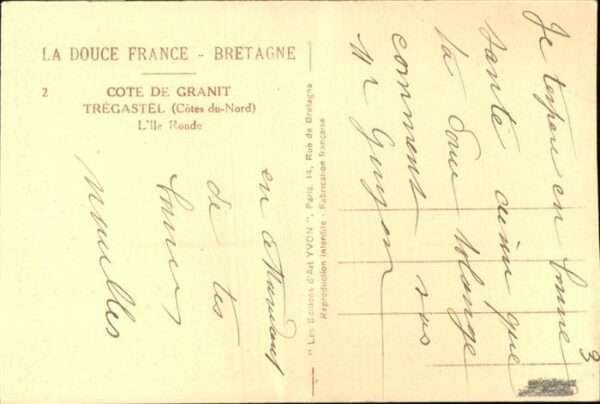 LA DOUCE FRANCE - BRETAGNE
2 COTE DE GRANIT
TRÉGASTEL (Côtes du-Nord)
L'Ile Ronde
" Les Editions d'Art YVON ", Paris, 14, Rue de Bretagne
Reproduction interdite - Fabrication française
Je t'espere en bonne
santé ainsi que
ta Solange
comment vas
Mr Guyon
en attendant
de tes
bonnes
nouvelles
3